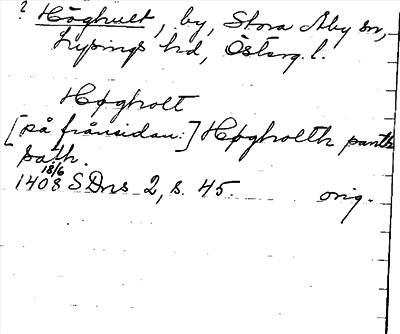 ? Höghult, by, Stora Åby sn,
Lysings hd, Östergl.
Høgholt
[på frånsidan:] Høgholth panth
sath.
18/6
1408 SDns 2, s. 45. orig.